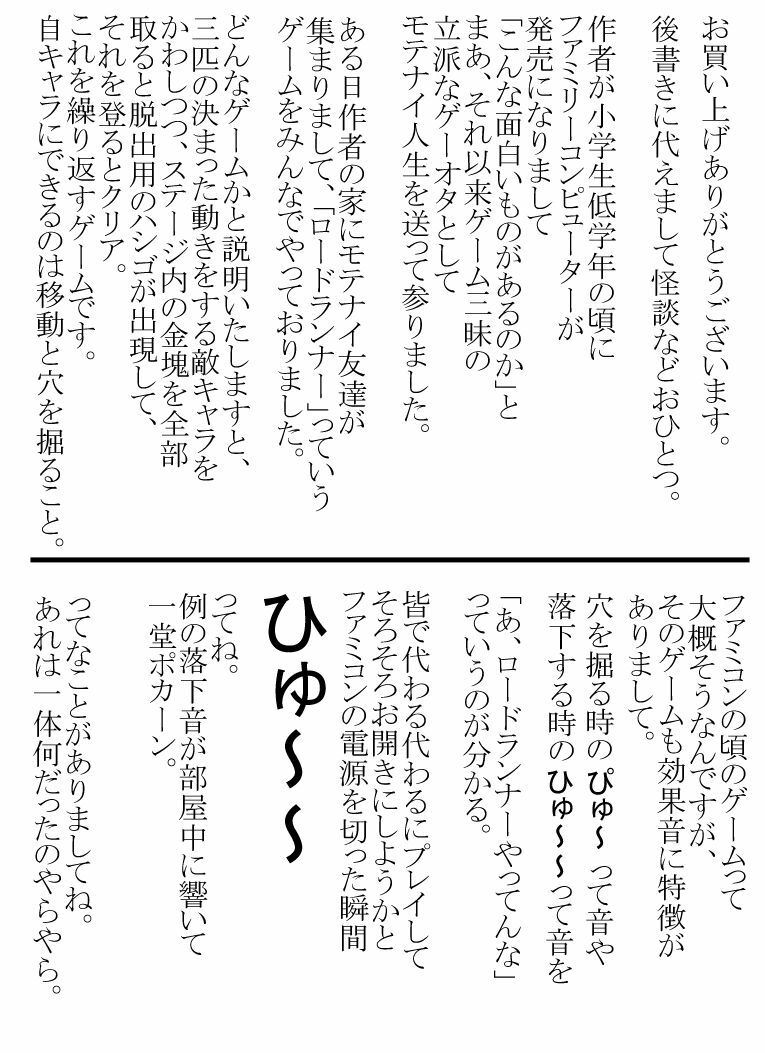 お買い上げありがとうございます。
後書きに代えまして怪談などおひとつ。
作者が小学生低学年の頃に
ファミリーコンピューターが
発売になりまして
「こんな面白いものがあるのか」と
まあ、それ以来ゲーム三昧の
立派なゲーオタとして
モテナイ人生を送って参りました。
ある日作者の家にモテナイ友達が
集まりまして、「ロードランナー」っていう
ゲームをみんなでやっておりました。
どんなゲームかと説明いたしますと、
三匹の決まった動きをする敵キャラを
かわしつつ、ステージ内の金塊を全部
取ると脱出用のハシゴが出現して、
それを登るとクリア。
これを繰り返すゲームです。
自キャラにできるのは移動と穴を掘ること。
ファミコンの頃のゲームって
大概そうなんですが、
そのゲームも効果音に特徴が
ありまして。
穴を掘る時のぴゅ～って音や
落下する時のひゅ～～って音を
「あ、ロードランナーやってんな」
っていうのが分かる。
皆で代わる代わるにプレイして
そろそろお開きにしようかと
ファミコンの電源を切った瞬間
ひゅ～～
ってね。
例の落下音が部屋中に響いて
一堂ポカーン。
ってなことがありましてね。
あれは一体何だったのやらやら。